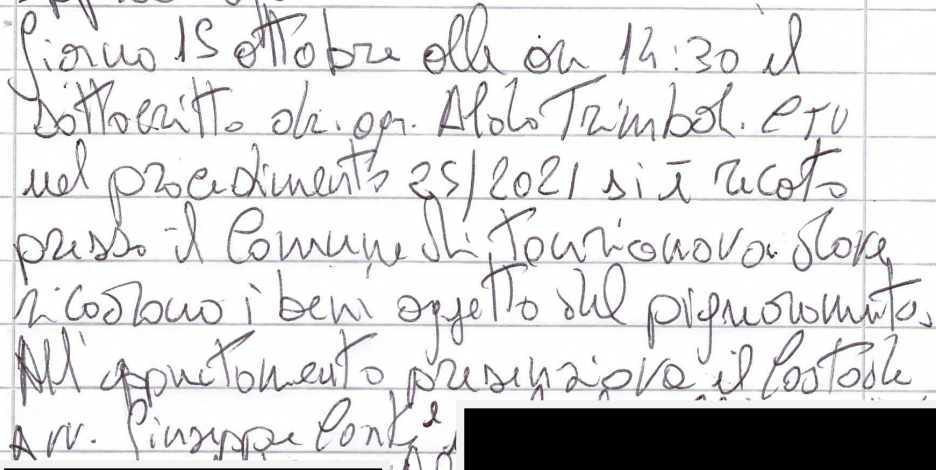 Giorno 15 ottobre alle ore 14:30 il
sottoscritto dr. agr. Aldo Trimboli CTU
nel procedimento 25/2021 si è recato
presso il Comune di Taurianova dove
ricadono i beni oggetto del pignoramento.
All'appuntamento presenziava il Custode
Avv. Giuseppe